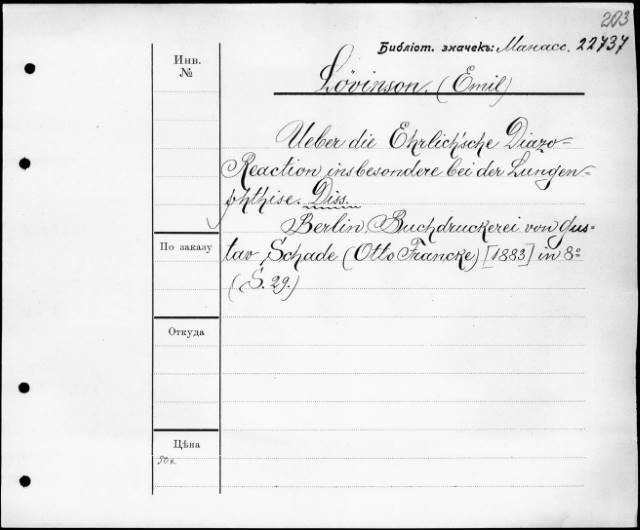 203
Библіот. значекъ: Манасс. 22737
Инв.
№
Lövinson, (Emil)
Ueber die Ehrlich'sche Diazo-
Reaction insbesondere bei der Lungen-
phthise. Diss.
Berlin, Buchdruckerei von Gus-
tav Schade (Otto Francke) [1883] in 8º
(S. 29.)
По заказу
Откуда
Цѣна
50 к.